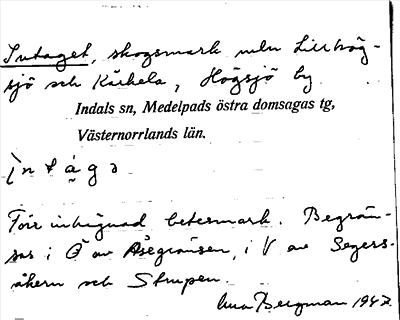 Intaget, skogsmark mln Lillhög-
sjö och Kärhela, Högsjö by
Indals sn, Medelpads östra domsagas tg,
Västernorrlands län.
Förr inhägnad betesmark. Begrän-
sas i Ö av Åsegränsen, i V av Segers-
åkern och Stupen.
Bergman 1942